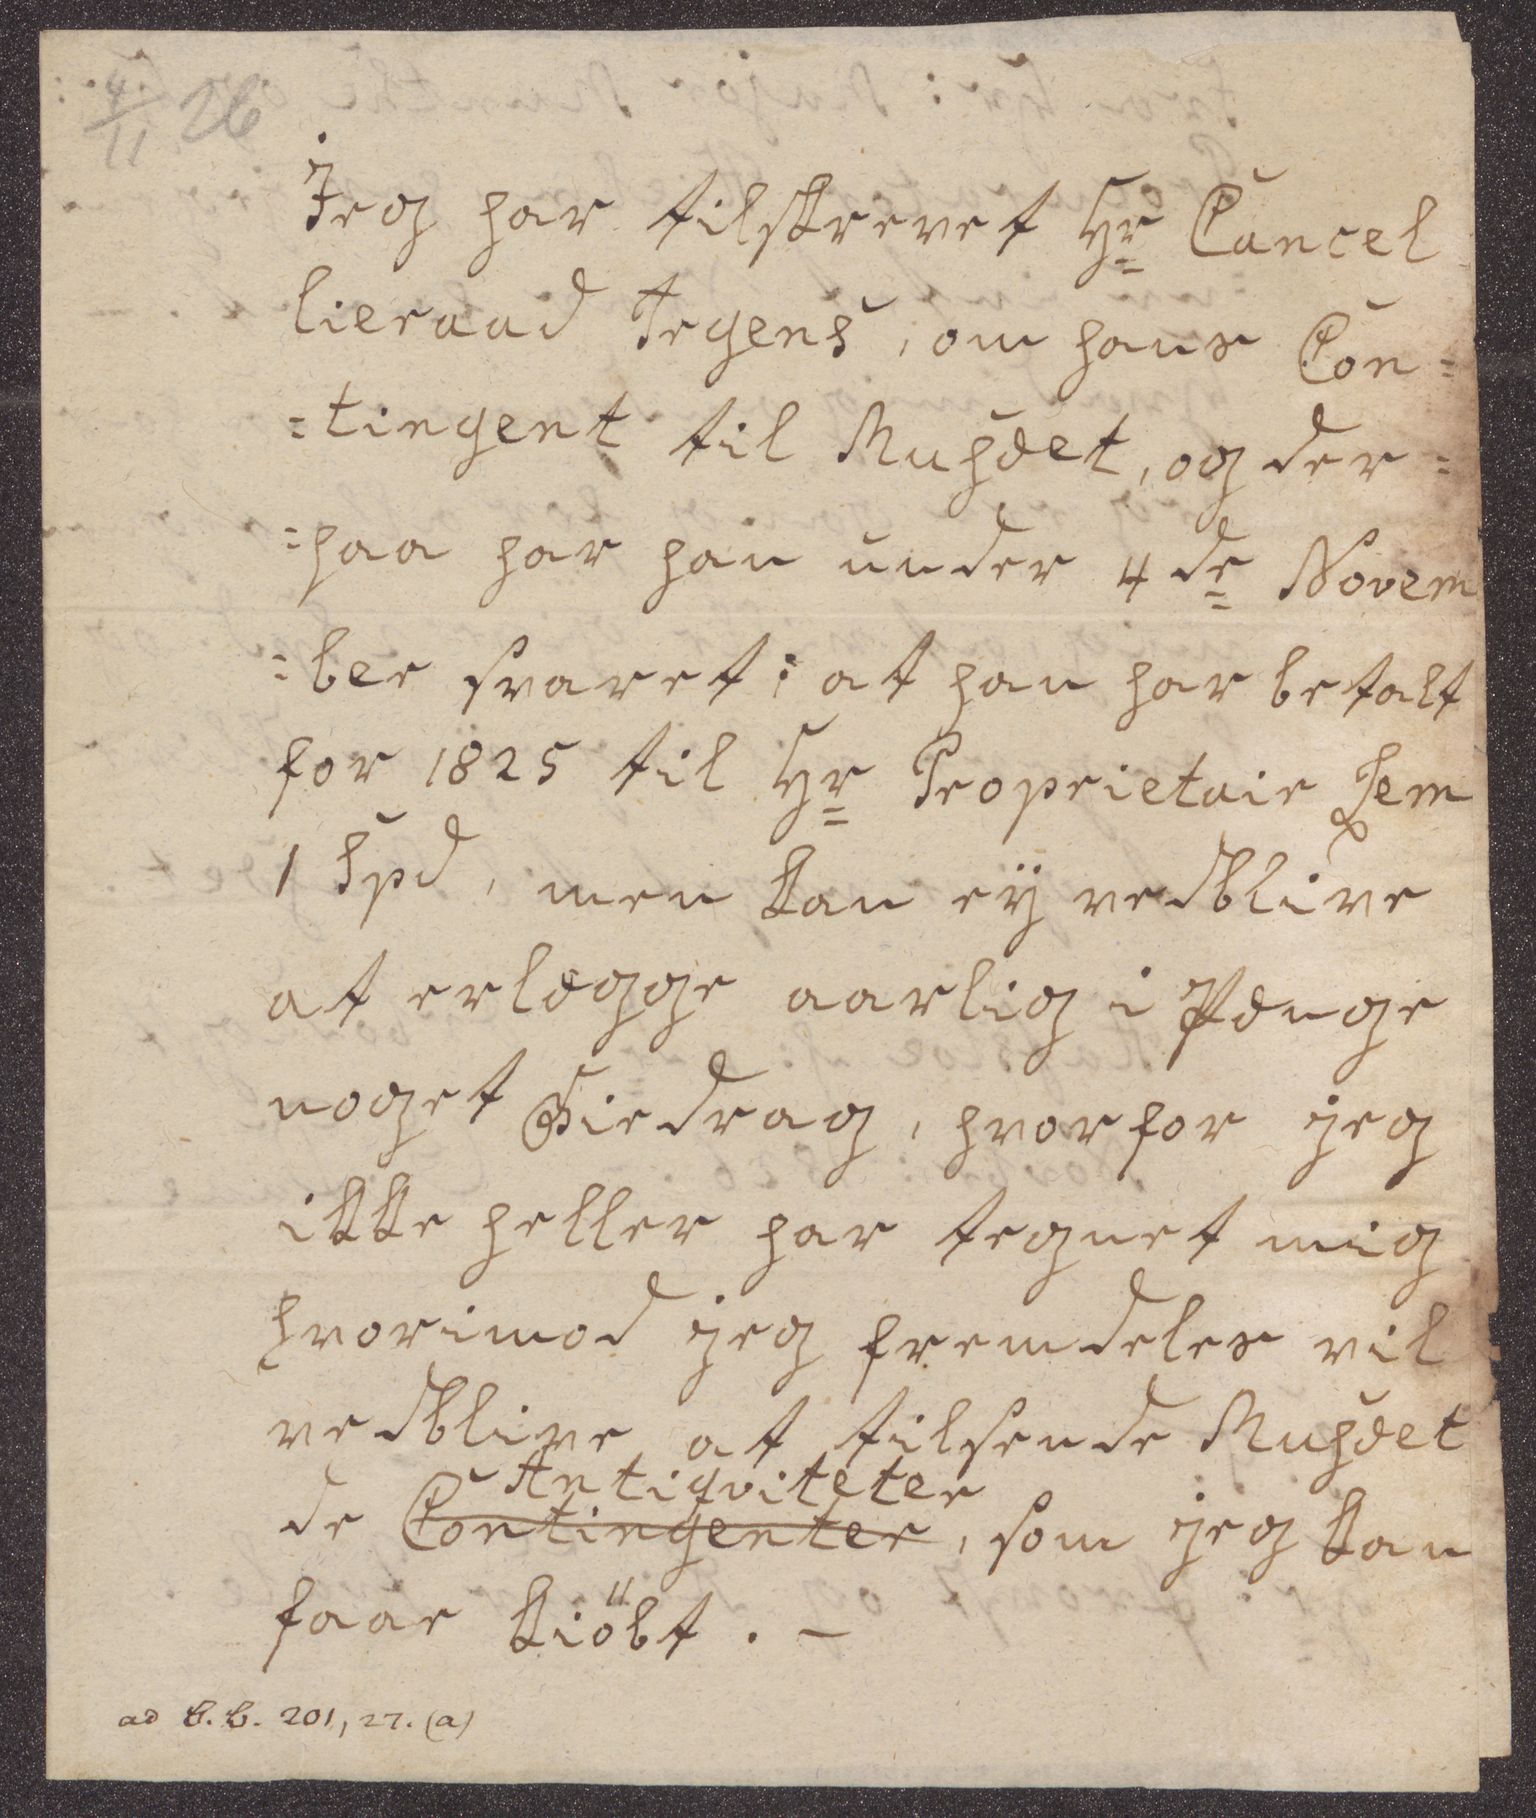 4/11 26
Jeg har tilskrevet Hr Cancel
lieraad Tegens, om hans Con=
=tingent til Musæet, og der=
=paa har han under 4de Novem
=ber svaret; at han har betalt
for 1825 til Hr Proprietair Jem
1 Spd, men kan eÿ vedblive
at erlægge aarlig i Penge
noget Biedrag, hvorfor jeg
ikke heller har tegnet mig
hvorimod jeg fremdeles vil
vedblive at tilsende Musæet
Antiqviteter
de Contingenter, som jeg kan
faae kiöbt. –
ad C.C. 201, 27. (a)